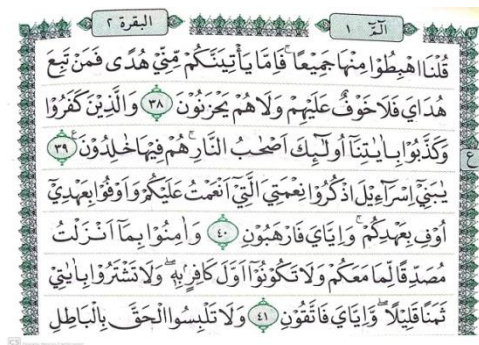 البقرة ٢
الٓمّٓ ١
قُلْنَا اهْبِطُوْا مِنْهَا جَمِيْعًا ۚ فَاِمَّا يَاْتِيَنَّكُمْ مِّنِّيْ هُدًى فَمَنْ تَبِعَ
هُدَايَ فَلَا خَوْفٌ عَلَيْهِمْ وَلَا هُمْ يَحْزَنُوْنَ ٣٨ وَالَّذِيْنَ كَفَرُوْا
وَكَذَّبُوْا بِاٰيٰتِنَاۤ اُولٰٓئِكَ اَصْحٰبُ النَّارِ ۚ هُمْ فِيْهَا خٰلِدُوْنَ ٣٩ ع
يٰبَنِيْۤ اِسْرَآءِيْلَ اذْكُرُوْا نِعْمَتِيَ الَّتِيْۤ اَنْعَمْتُ عَلَيْكُمْ وَاَوْفُوْا بِعَهْدِيْۤ
اُوْفِ بِعَهْدِكُمْ ۚ وَاِيَّايَ فَارْهَبُوْنِ ٤٠ وَاٰمِنُوْا بِمَاۤ اَنْزَلْتُ
مُصَدِّقًا لِّمَا مَعَكُمْ وَلَا تَكُوْنُوْۤا اَوَّلَ كَافِرٍۭ بِهٖ ۖ وَلَا تَشْتَرُوْا بِاٰيٰتِيْ
ثَمَنًا قَلِيْلًا ۖ وَاِيَّايَ فَاتَّقُوْنِ ٤١ وَلَا تَلْبِسُوا الْحَقَّ بِالْبَاطِلِ
CS